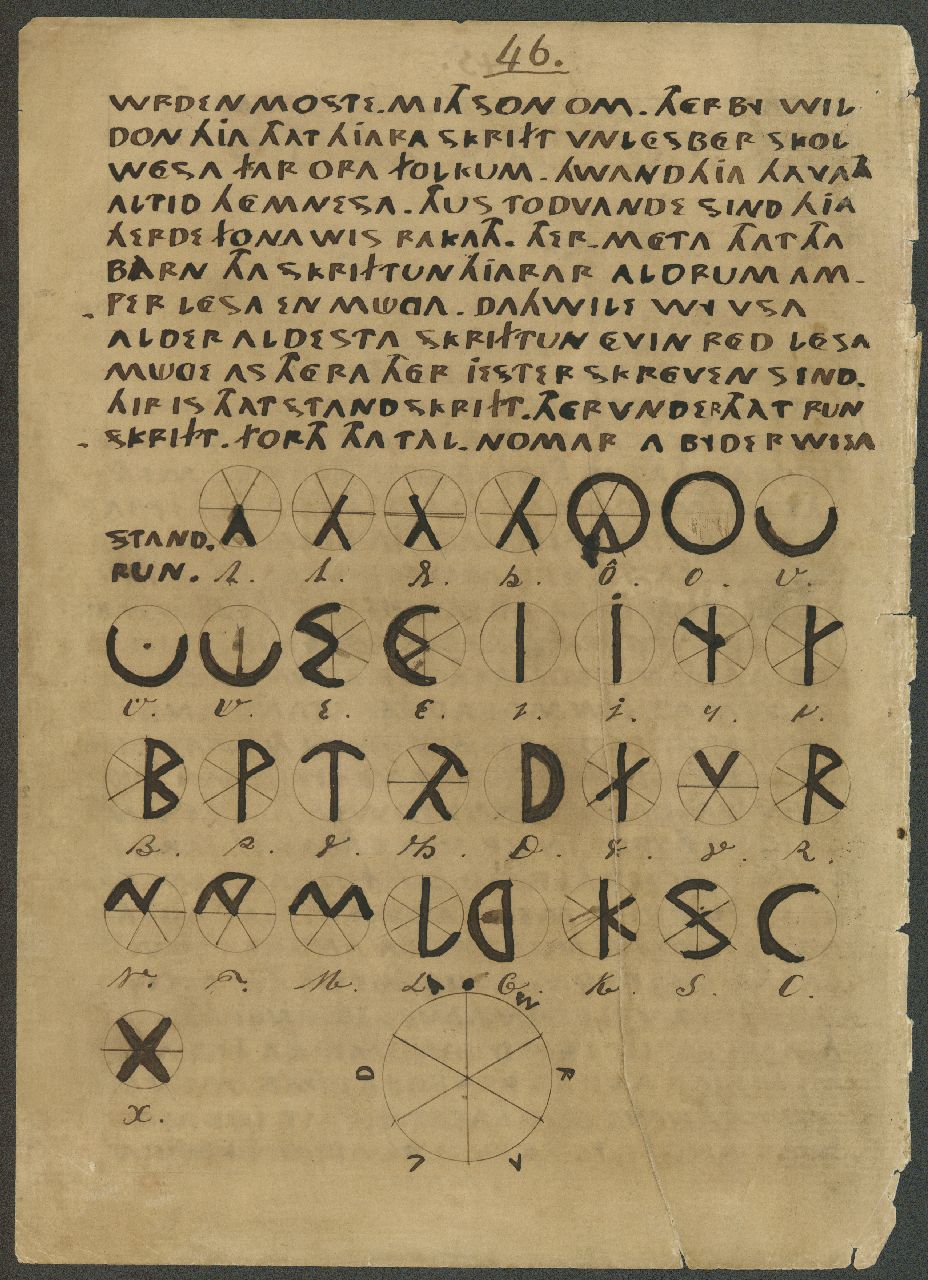 46.
WRDEN MOSTE. MITH SON OM. THERBY WIL
DON HJA THAT HJARA SKRIFT VNLESBER SKOL
WESA FAR ORA FOLKUM. HWAND HJA HAVATH
ALTID HEMNESA. THUS TODVANDE SIND HJA
HERDE FONA WIS RAKATH. THER-META THAT THA
BARN THA SKRIFTUN HJARAR ALDRUM AM-
PER LESA EN MÜGA. DAHWILE WY VSA
ALDER ALDESTA SKRIFTUN EVIN RED LESA
MÜGE AS THERA THER JESTER SKREVEN SIND.
HIR IS THAT STANDSKRIFT. THERVNDER THAT RUN
SKRIFT. FORTH THA TAL-NOMAR A BYDER WISA
STAND.
RUN. O. O. U.
E. E. I. J. Y.
B. P. T. TH. D. F. V. R.
N. M. L. G. K. S. C.
X.